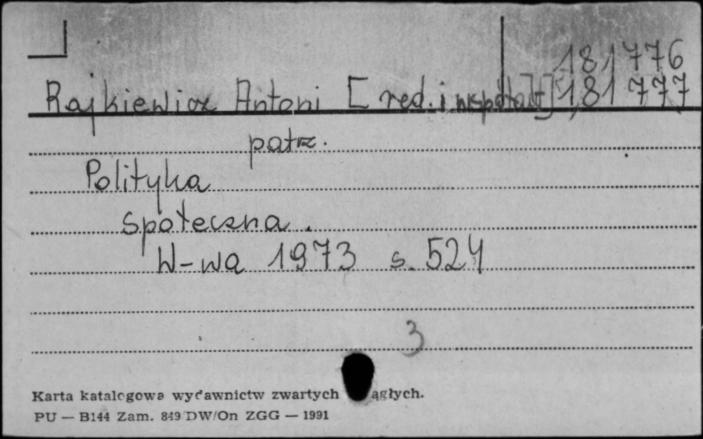 181 776
Rajkiewicz Antoni [red. i współaut] 181 777
patrz.
Polityka
społeczna.
W-wa 1973 s. 524
3
Karta katalogowa wydawnictw zwartych ciągłych.
PU — B144 Zam. 849 DW/On ZGG — 1991